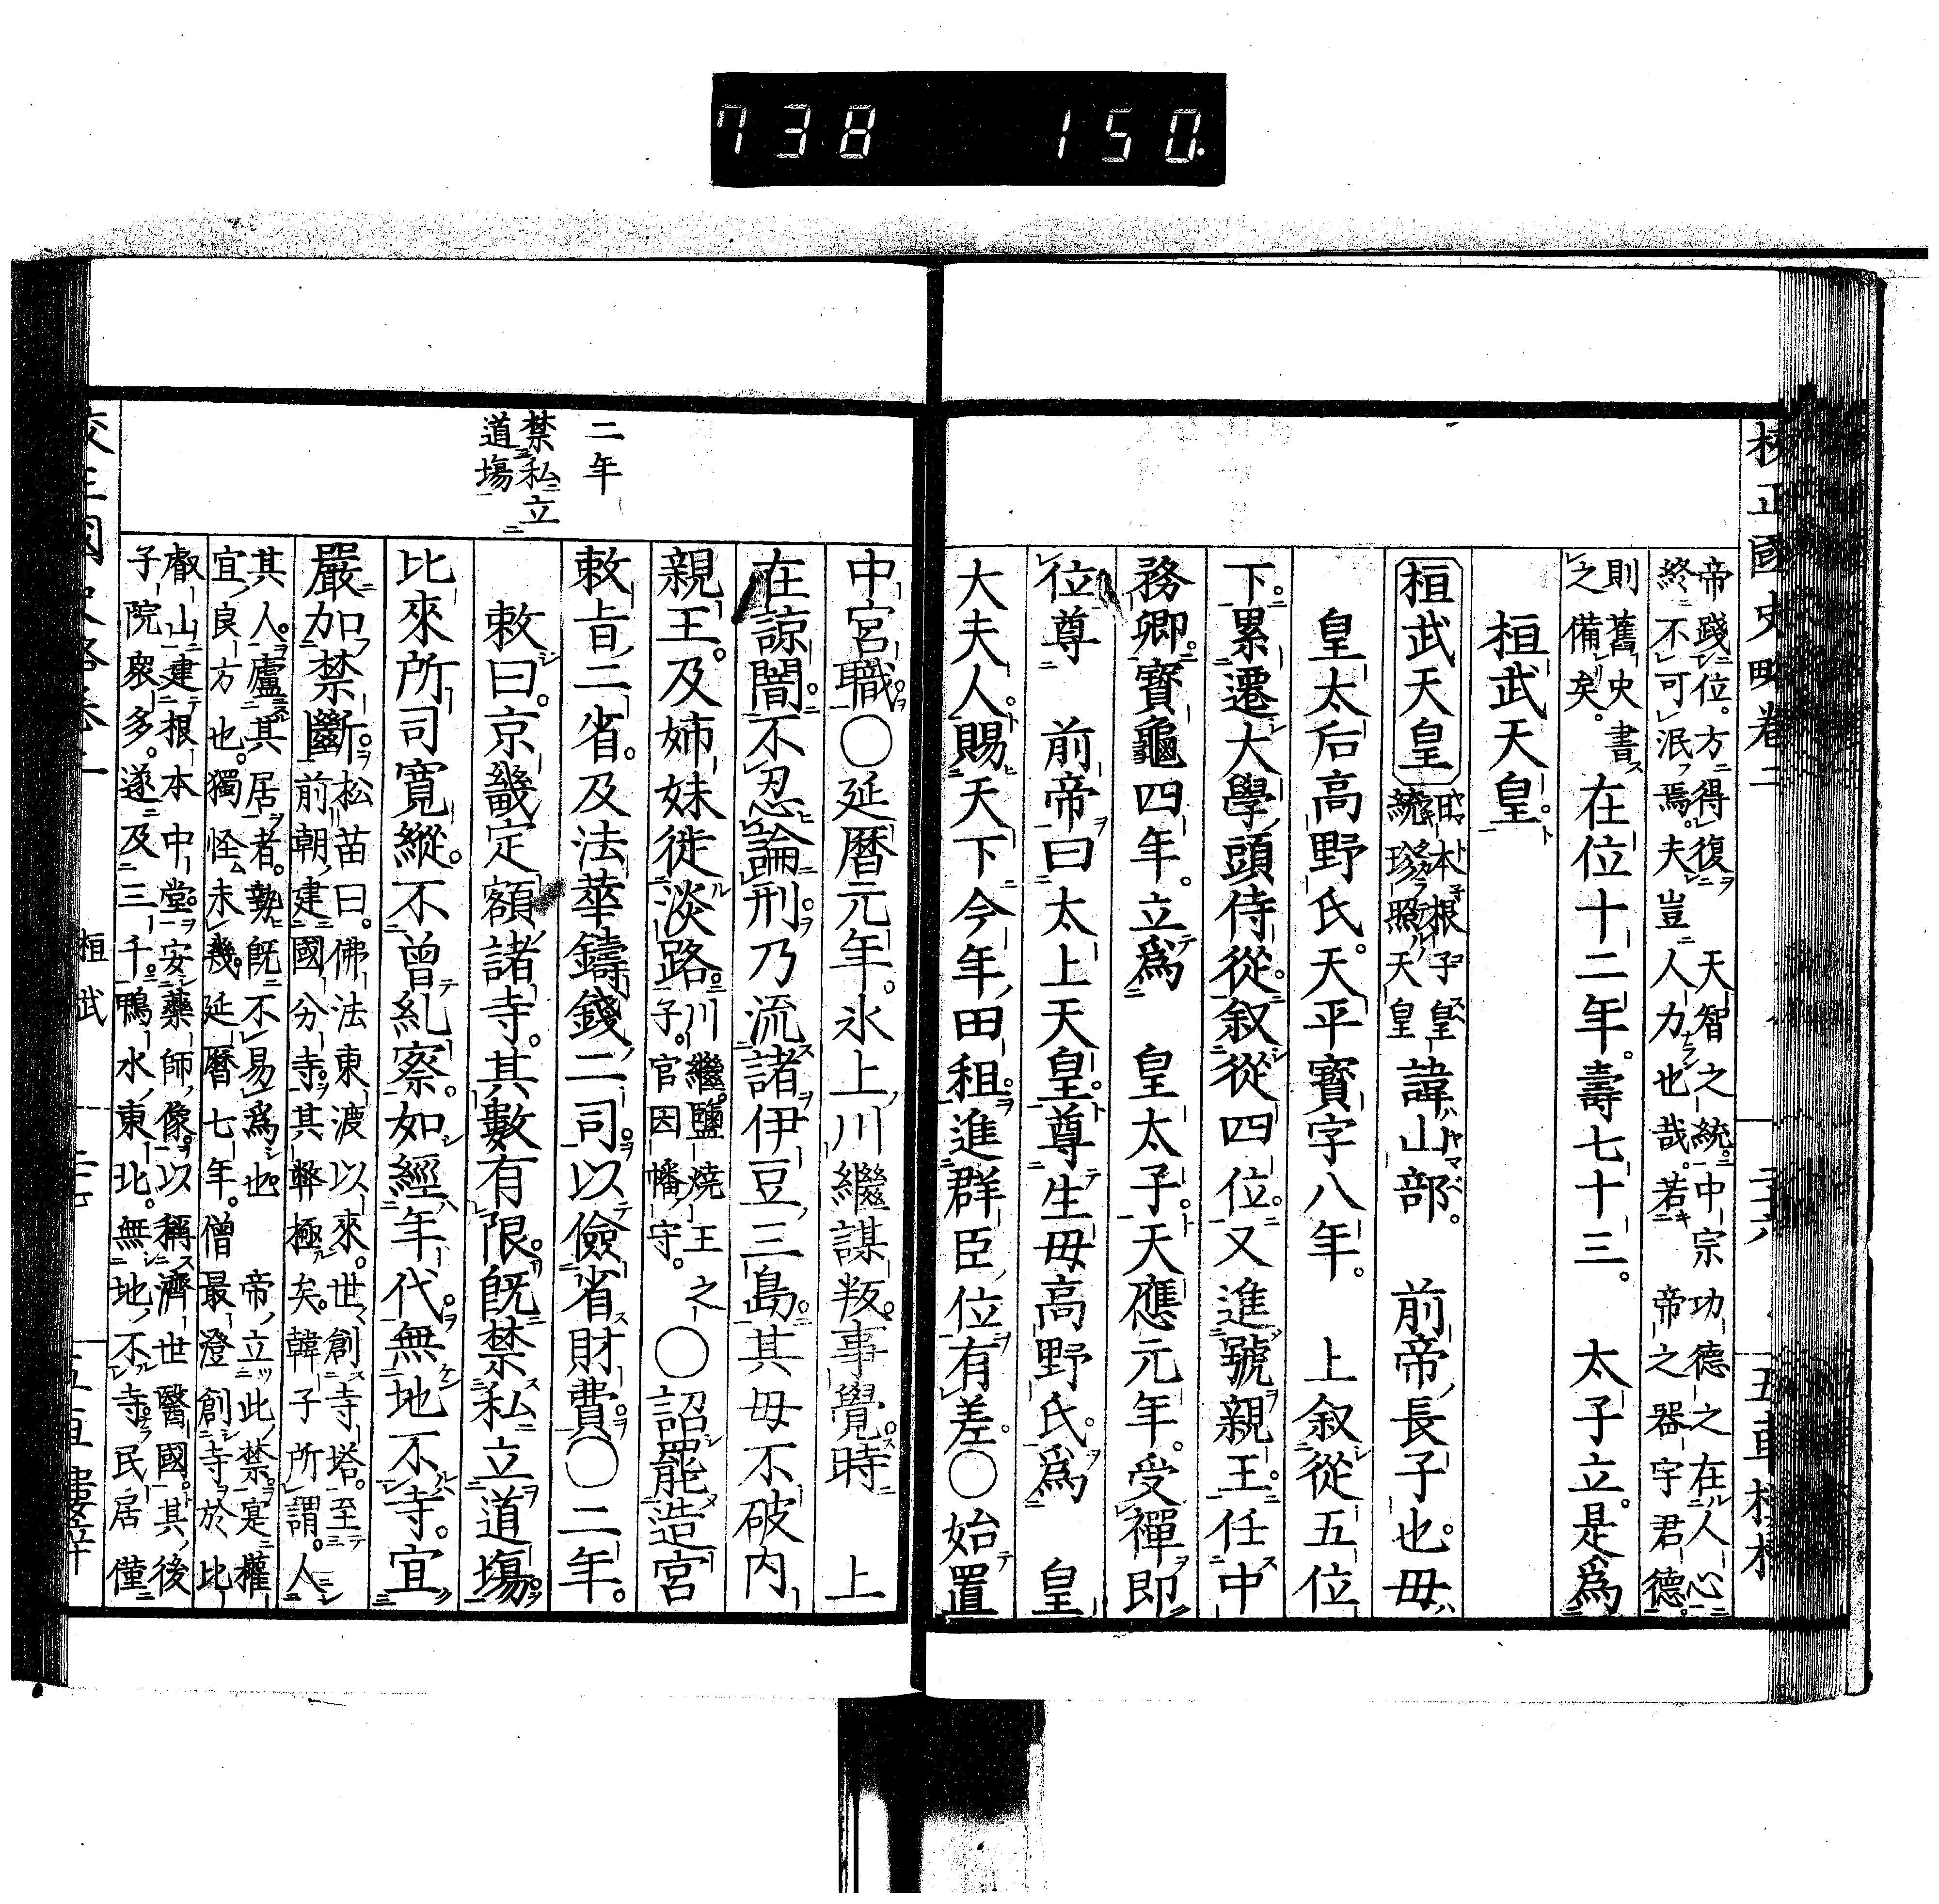 738 150.
校正國史略卷二
二十六
五車樓梓
帝踐位。方得復 天智之統。中宗功德之在人心
終不可泯焉。夫豈人力也哉。若 帝之器宇君德。
則舊史書
之備矣。
在位十二年。壽七十三。 太子立。是爲
桓武天皇。
桓武天皇
日本根子皇
統珍照天皇
諱山部。 前帝長子也。母
皇太后高野氏。天平寶字八年。 上叙從五位
下。累遷大學頭侍從。叙從四位。又進號親王。任中
務卿。寶龜四年。立爲 皇太子。天應元年。受禪即
位尊 前帝曰太上天皇。尊生母高野氏。爲 皇
大夫人。賜天下今年田租。進群臣位有差。〇始置
中宮職。〇延曆元年。氷上川繼謀叛。事覺。時 上
在諒闇。不忍論刑。乃流諸伊豆三島。其母不破内
親王。及姉妹徙淡路。
川繼。鹽燒王之
子。官因幡守。
〇詔罷造宮
敕旨二省。及法華鑄錢二司。以儉省財費。〇二年。
敕曰。京畿定額諸寺。其數有限。既禁私立道塲。
比來所司寬縱。不曾糺察。如經年代。無地不寺。宜
嚴加禁斷。
松苗曰。佛法東渡以來。世創寺塔。至
前朝建國分寺。其弊極矣。韓子所謂。人
其人。廬其居者。勢既不易爲也 帝立此禁。寔權
宜良方也。獨怪未幾。延曆七年。僧最澄創寺於比
叡山。建根本中堂。安藥師像。以稱濟世醫國。其後
子院衆多。遂及三千。鴨水東北。無地不寺。民居僅
二年
禁私立
道塲
桓武